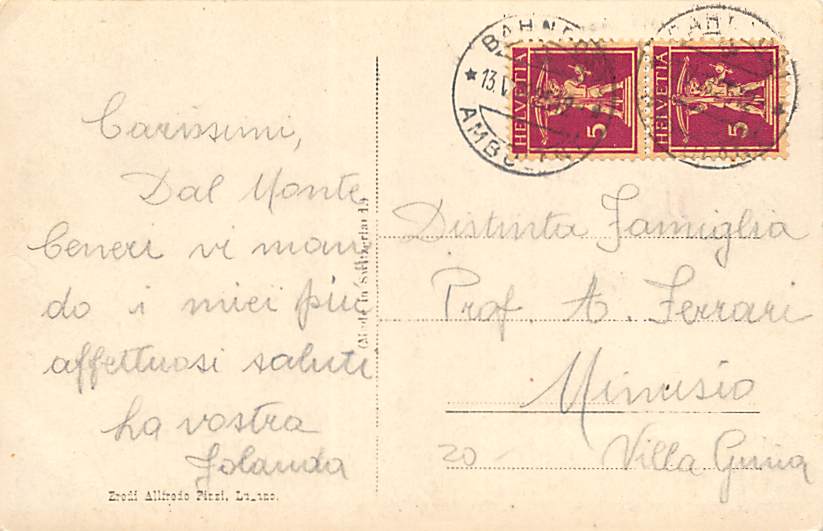 Carissimi,
Dal Monte
Ceneri vi man
do i miei più
affettuosi saluti
La vostra
Jolanda
Eredi Alfredo Finzi, Lugano.
(Made in Switzerland)
HELVETIA 5
HELVETIA 5
13.V
Distinta Famiglia
Prof. A. Ferrari
Minusio
20- Villa